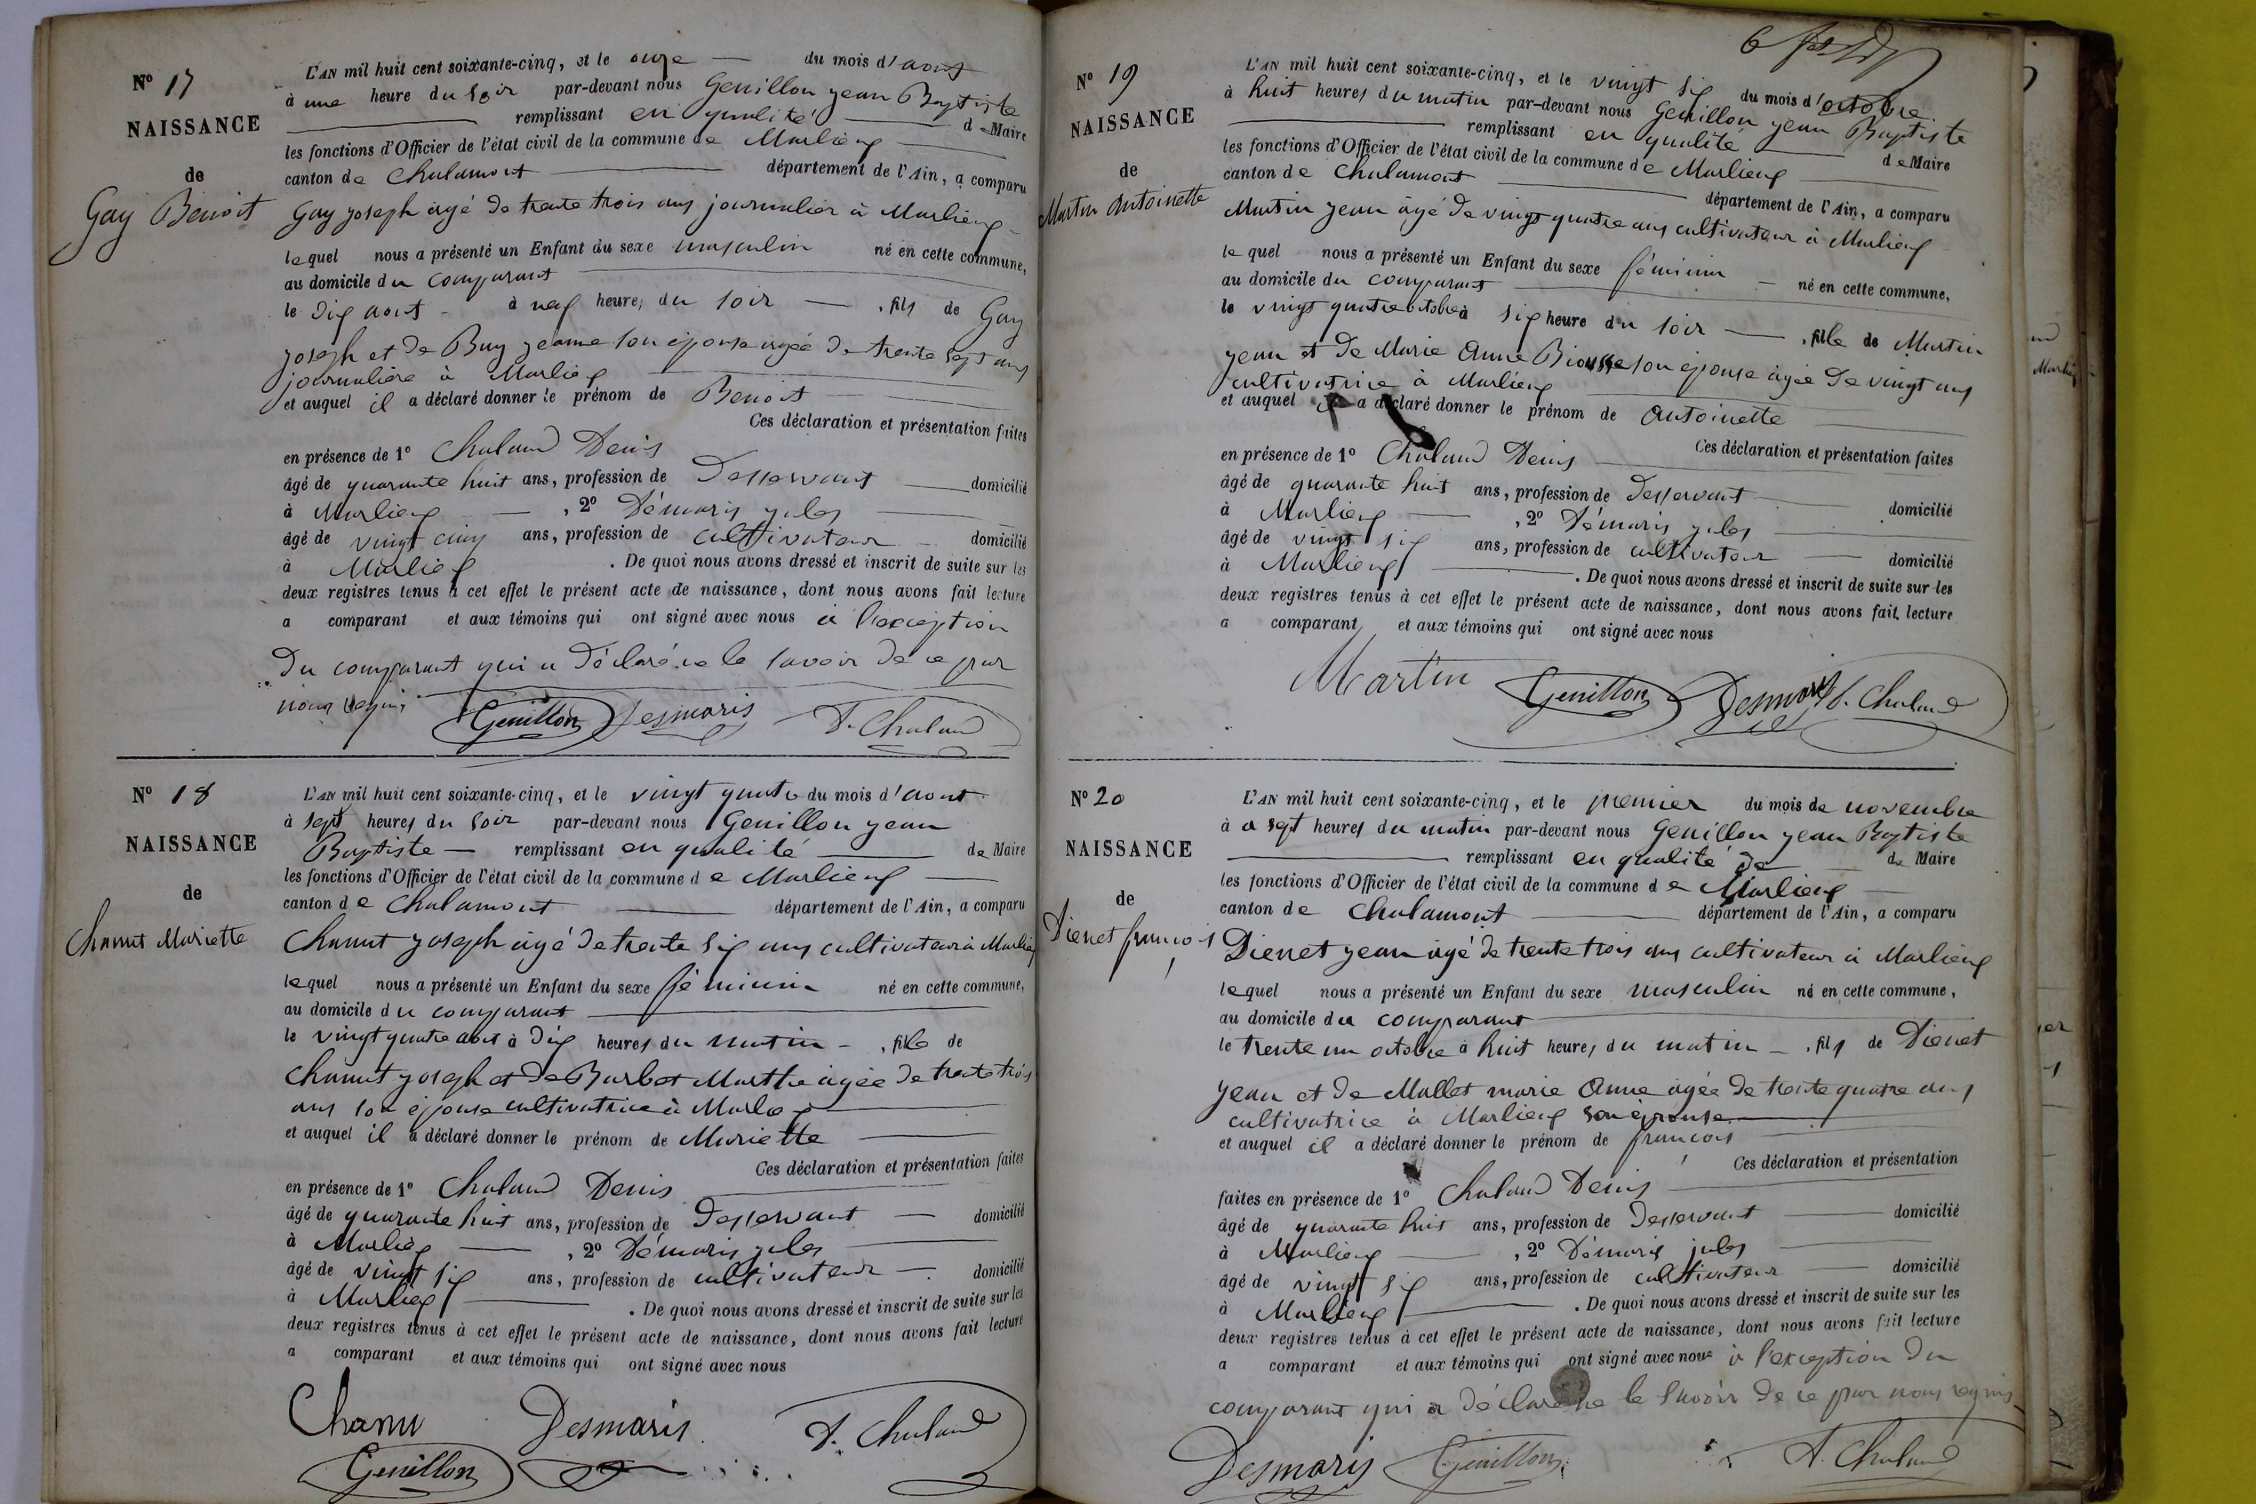 Nº 17
NAISSANCE
de
Gay Benoit
L'AN mil huit cent soixante-cinq, et le onze du mois d'aout
à une heure du soir par-devant nous Genillon jean Baptiste
remplissant en qualité de Maire
les fonctions d'Officier de l'état civil de la commune de Marlieux
canton de Chalamont département de l'Ain, a comparu
Gay joseph agé de trente trois ans journalier à Marlieux
lequel nous a présenté un Enfant du sexe masculin né en cette commune,
au domicile du comparant
le dix aout à neuf heures du soir, fils de Gay
joseph et de Buy jeanne son épouse agée de trente sept ans
journalière à Marlieux
et auquel il a déclaré donner le prénom de Benoit
Ces déclaration et présentation faites
en présence de 1º Chaland Denis
âgé de quarante huit ans, profession de Desservant domicilié
à Marlieux, 2º Démaris jules
âgé de vingt cinq ans, profession de cultivateur domicilié
à Marlieux. De quoi nous avons dressé et inscrit de suite sur les
deux registres tenus à cet effet le présent acte de naissance, dont nous avons fait lecture
a comparant et aux témoins qui ont signé avec nous à l'exception
du comparant qui a déclaré ne le savoir de ce par
nous requis
Genillon Desmaris D. Chaland
Nº 18
NAISSANCE
de
Chanut Mariette
L'AN mil huit cent soixante-cinq, et le vingt quatre du mois d'aout
à sept heures du soir par-devant nous Genillon jean
Baptiste remplissant en qualité de Maire
les fonctions d'Officier de l'état civil de la commune de Marlieux
canton de Chalamont département de l'Ain, a comparu
Chanut joseph agé de trente six ans cultivateur à Marlieux
lequel nous a présenté un Enfant du sexe féminin né en cette commune,
au domicile du comparant
le vingt quatre aout à dix heures du matin, fille de
Chanut joseph et de Barbet Marthe agée de trente trois
ans son épouse cultivatrice à Marlieux
et auquel il a déclaré donner le prénom de Mariette
Ces déclaration et présentation faites
en présence de 1º Chaland Denis
âgé de quarante huit ans, profession de Desservant domicilié
à Marlieux, 2º Démaris jules
âgé de vingt six ans, profession de cultivateur domicilié
à Marlieux. De quoi nous avons dressé et inscrit de suite sur les
deux registres tenus à cet effet le présent acte de naissance, dont nous avons fait lecture
a comparant et aux témoins qui ont signé avec nous
Chanu Desmaris D. Chaland
Genillon
6
Nº 19
NAISSANCE
de
Martin Antoinette
L'AN mil huit cent soixante-cinq, et le vingt six du mois d'octobre
à huit heures du matin par-devant nous Genillon jean Baptiste
remplissant en qualité de Maire
les fonctions d'Officier de l'état civil de la commune de Marlieux
canton de Chalamont département de l'Ain, a comparu
Martin jean agé de vingt quatre ans cultivateur à Marlieux
lequel nous a présenté un Enfant du sexe féminin né en cette commune,
au domicile du comparant
le vingt quatre octobre à six heure du soir, fille de Martin
jean et de Marie Anne Biousse son épouse agée de vingt ans
cultivatrice à Marlieux
et auquel il a déclaré donner le prénom de Antoinette
Ces déclaration et présentation faites
en présence de 1º Chaland Denis
âgé de quarante huit ans, profession de Desservant domicilié
à Marlieux, 2º Démaris jules
âgé de vingt six ans, profession de cultivateur domicilié
à Marlieux. De quoi nous avons dressé et inscrit de suite sur les
deux registres tenus à cet effet le présent acte de naissance, dont nous avons fait lecture
a comparant et aux témoins qui ont signé avec nous
Martin Genillon Desmaris D. Chaland
Nº 20
NAISSANCE
de
Dienet françois
L'AN mil huit cent soixante-cinq, et le premier du mois de novembre
à a sept heures du matin par-devant nous Genillon jean Baptiste
remplissant en qualité de de Maire
les fonctions d'Officier de l'état civil de la commune de Marlieux
canton de Chalamont département de l'Ain, a comparu
Dienet jean agé de trente trois ans cultivateur à Marlieux
lequel nous a présenté un Enfant du sexe masculin né en cette commune,
au domicile du comparant
le trente un octobre à huit heures du matin, fils de Dienet
jean et de Mallet marie Anne agée de trente quatre ans
cultivatrice à Marlieux son épouse
et auquel il a déclaré donner le prénom de françois
Ces déclaration et présentation
faites en présence de 1º Chaland Denis
âgé de quarante huit ans, profession de Desservant domicilié
à Marlieux, 2º Démaris jules
âgé de vingt six ans, profession de cultivateur domicilié
à Marlieux. De quoi nous avons dressé et inscrit de suite sur les
deux registres tenus à cet effet le présent acte de naissance, dont nous avons fait lecture
a comparant et aux témoins qui ont signé avec nous à l'exception du
comparant qui a déclaré ne le savoir de ce par nous requis
Desmaris Genillon D. Chaland